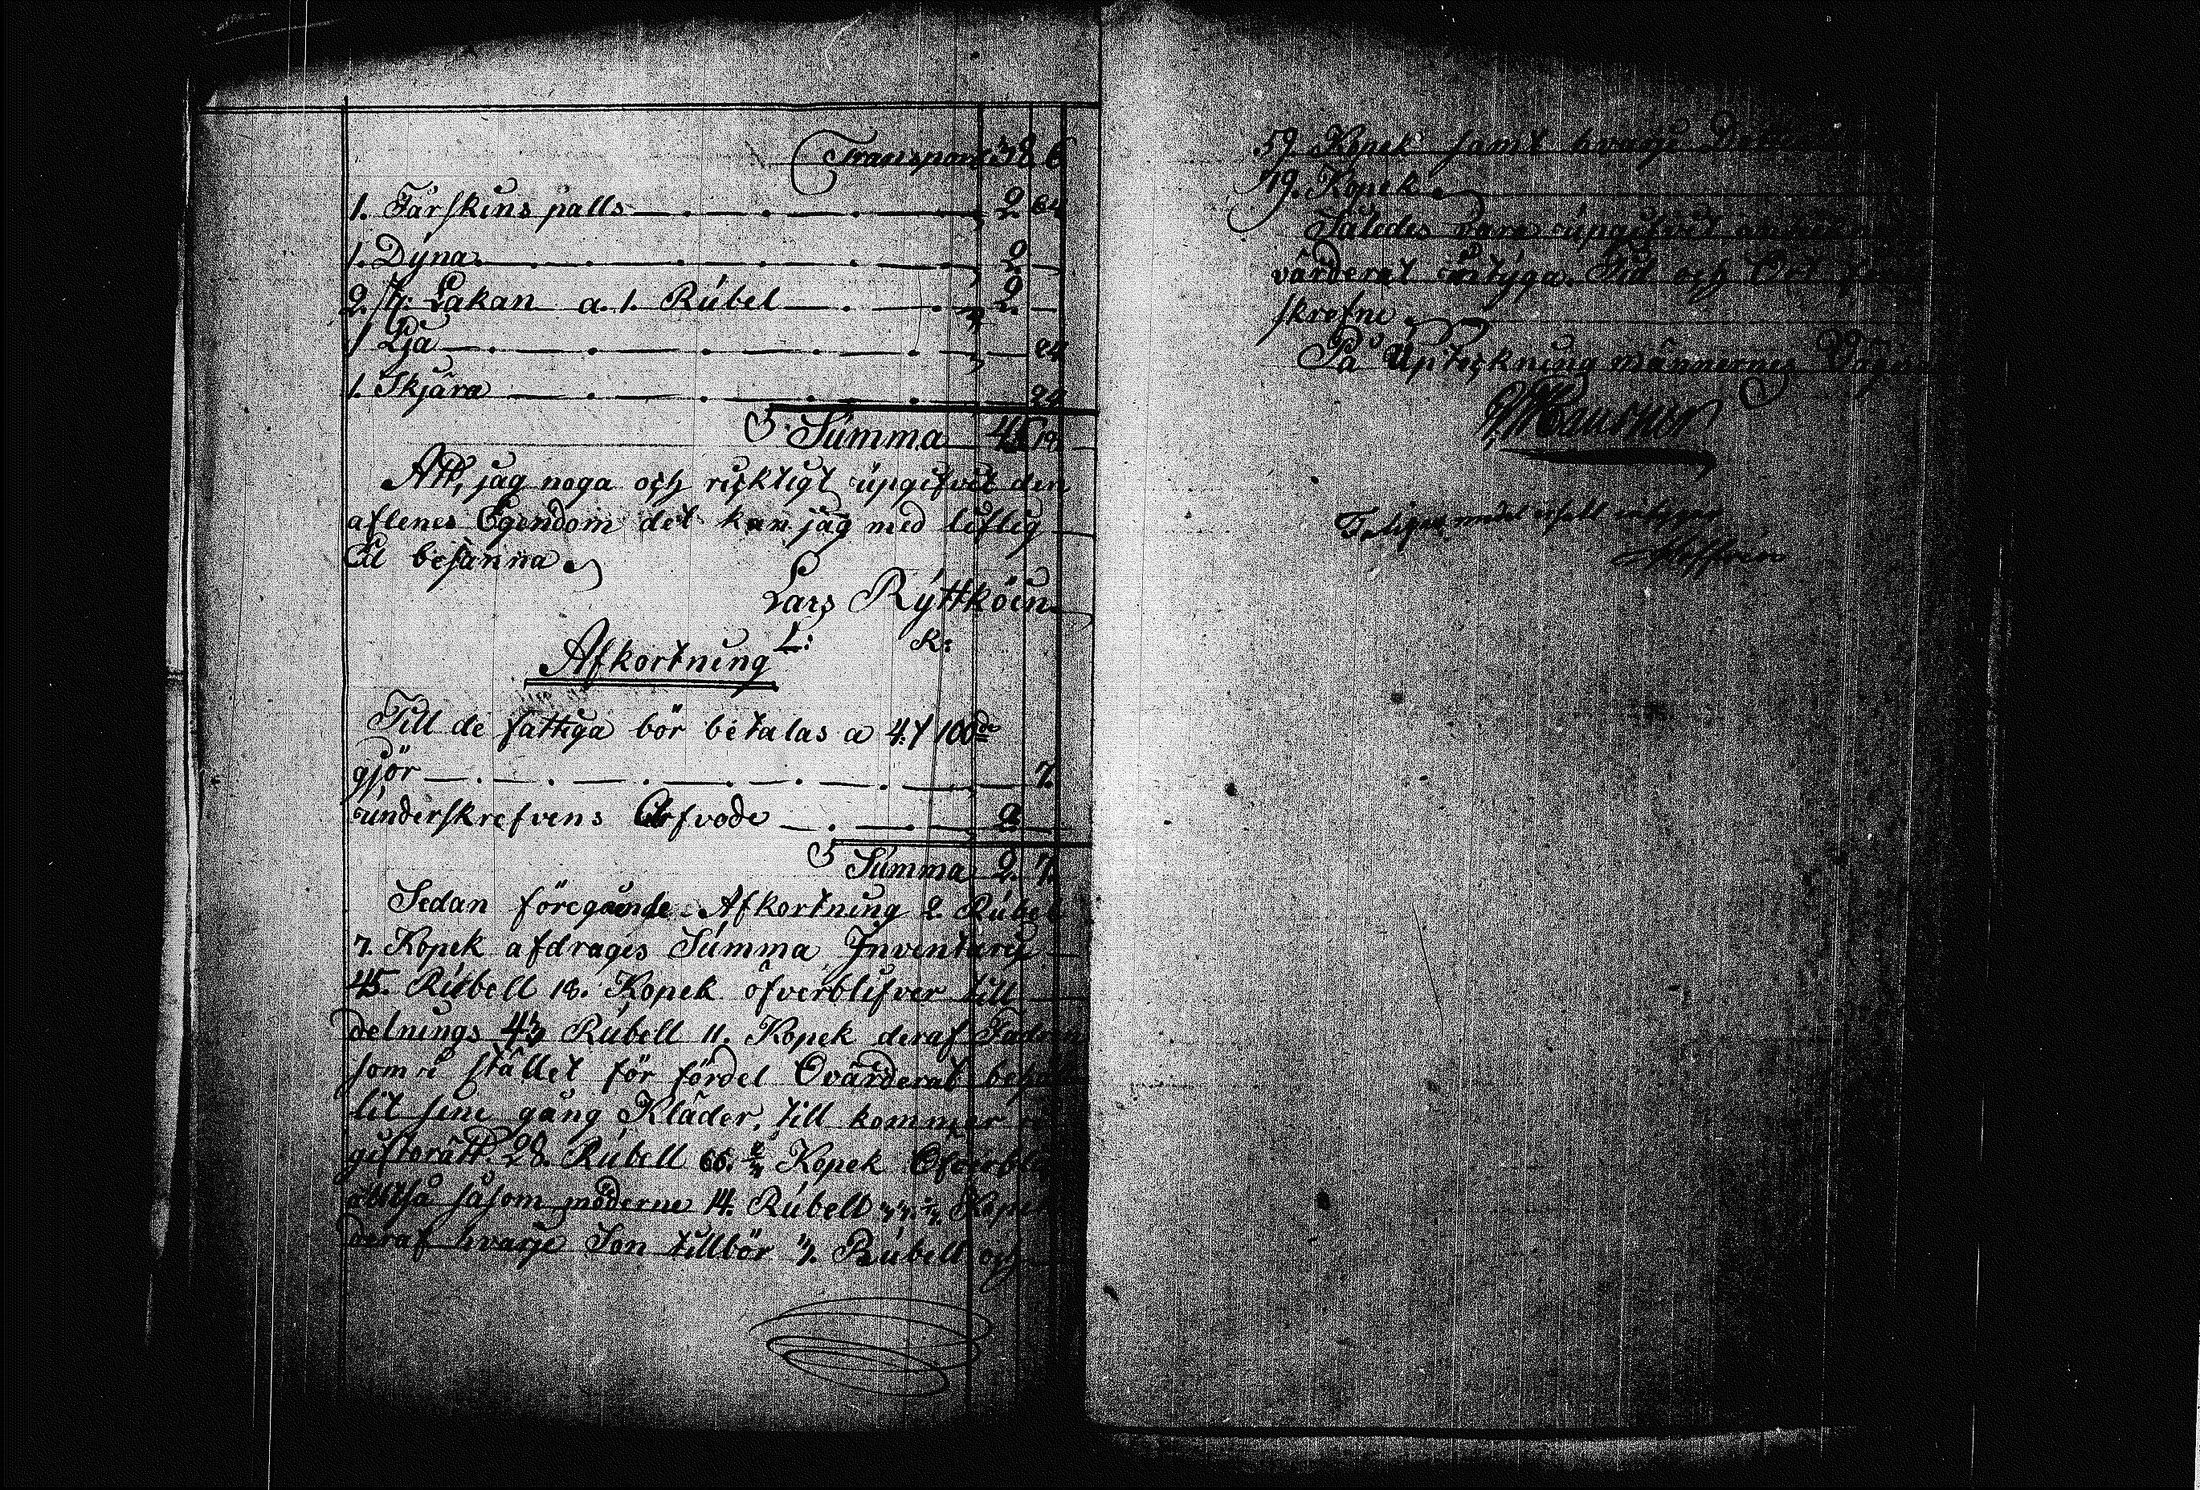 Transport 38 6
1. Fårskins palls 2 64
1. Dyna 2
2. st: Lakan a. 1. Rubel 2
1 Lja 24
1. Skjära 24
Summa 45 18
Att, jag noga och ricktigt upgifvet den
aflenes Egendom det kan jag med liflig
Ed besanna
Lars Ryttköin
L: R:
Afkortning
Till de fattiga bör betalas a 4/ 100de
gjör 7.
underskrefvens Arfvode 2
Summa 2. 7.
Sedan föregående Afkortning 2 Rubel
7. Kopek afdrages Summa Inventarij
45. Rubell 18. Kopek öfverblifver till
delnings 43 Rubell 11. Kopek deraf Fadren
som i stället för fördel Ovärderat behål
lit sine gång Kläder, till kommer i
giftorätt 28. Rubell 66. Kopek Öfverbli
alltså såsom möderne 14. Rubell Kopek
deraf hvarje Son tillbör Rubell och
59 Kopek samt hvarje Dotter
79. Kopek
Således vara upgifvet
värderat intyga. Tid och Ort
skrefne
På Upteckning männernes Vägnar